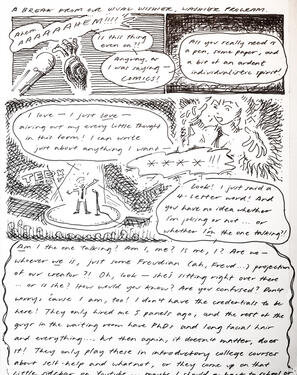 A BREAK FROM OUR USUAL WISHIER, WASHIER PROGRAM.
Ahem,
AAAAAAHEM!!!!
Is this thing
even on?!
Anyway, as
I was saying
COMICS!
All you really need is
a pen, some paper, and
a bit of an ardent
individualistic spirit!
I love — I just love —
airing out my every little thought
in this team! I can write
just about anything I want —
TEDX
* * * * !!!
Look! I just said a
4-letter word! And
you have no idea whether
I'm joking or not... or
whether I'm the one talking?!
Am I the one talking? Am I, me? Is me, I? Are we —
whoever we is, just some Freudian (ah, Freud...) projection
of our creator?! Oh, look — she's sitting right over there
... or is she? How would you know? Are you confused? Don't
worry, cause I am, too! I don't have the credentials to be
here! They only hired me 3 panels ago, and the rest of the
guys in the waiting room have PhDs and long facial hair
and everything.... but then again, it doesn't matter, does
it! They only play these in introductory college courses
about self-help and whatnot, or they come up on that
little sidebar on Youtube... maybe I should go back to school or